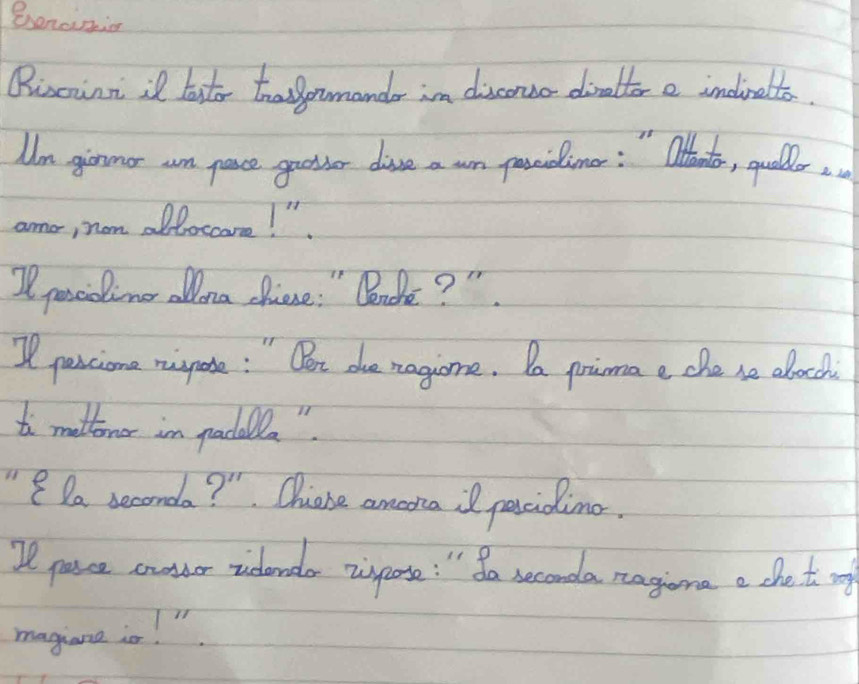 Esercizio
Riscrivi il testo trasformando in discorso diretto e indiretto.
Un giorno un pesce grosso disse a un pesciolino: " Attento, quello e un
amo, non abboccare!".
Il pesciolino allora chiese: " Perché ?".
Il pescione rispose : " Per due ragione. La prima e che se abocchi
ti mettono in padella".
"E la seconda?". Chiese ancora il pesciolino.
Il pesce crosso ridendo rispose: "La seconda ragione e che ti
magiare io!".